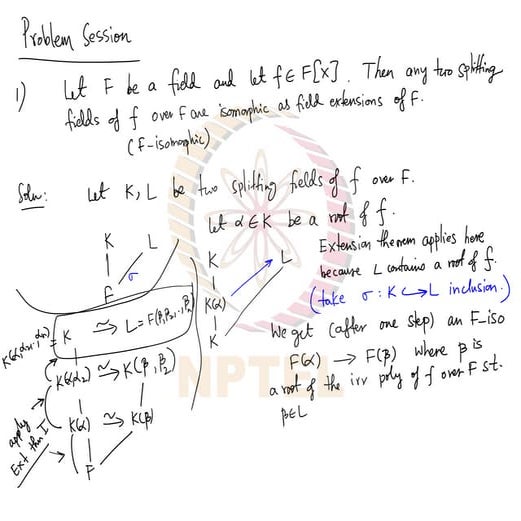 Problem Session
1) Let F be a field and let f ∈ F[X]. Then any two splitting
fields of f over F are isomorphic as field extensions of F.
(F-isomorphic)
Soln: Let K, L be two splitting fields of f over F.
Let α ∈ K be a root of f.
K L
σ
F
K
L
K(α)
K
Extension theorem applies here
because L contains a root of f.
(take σ: K ↪ L inclusion.)
We get (after one step) an F-iso
F(α) → F(β) where β is
a root of the irr poly of f over F s.t.
β ∈ L
= K ≅→ L = F(β₁, β₂, ..., βₙ)
K(α₁, α₂) ≅→ K(β₁, β₂)
K(α) ≅→ K(β)
F
apply
Ext thm I
NPTEL